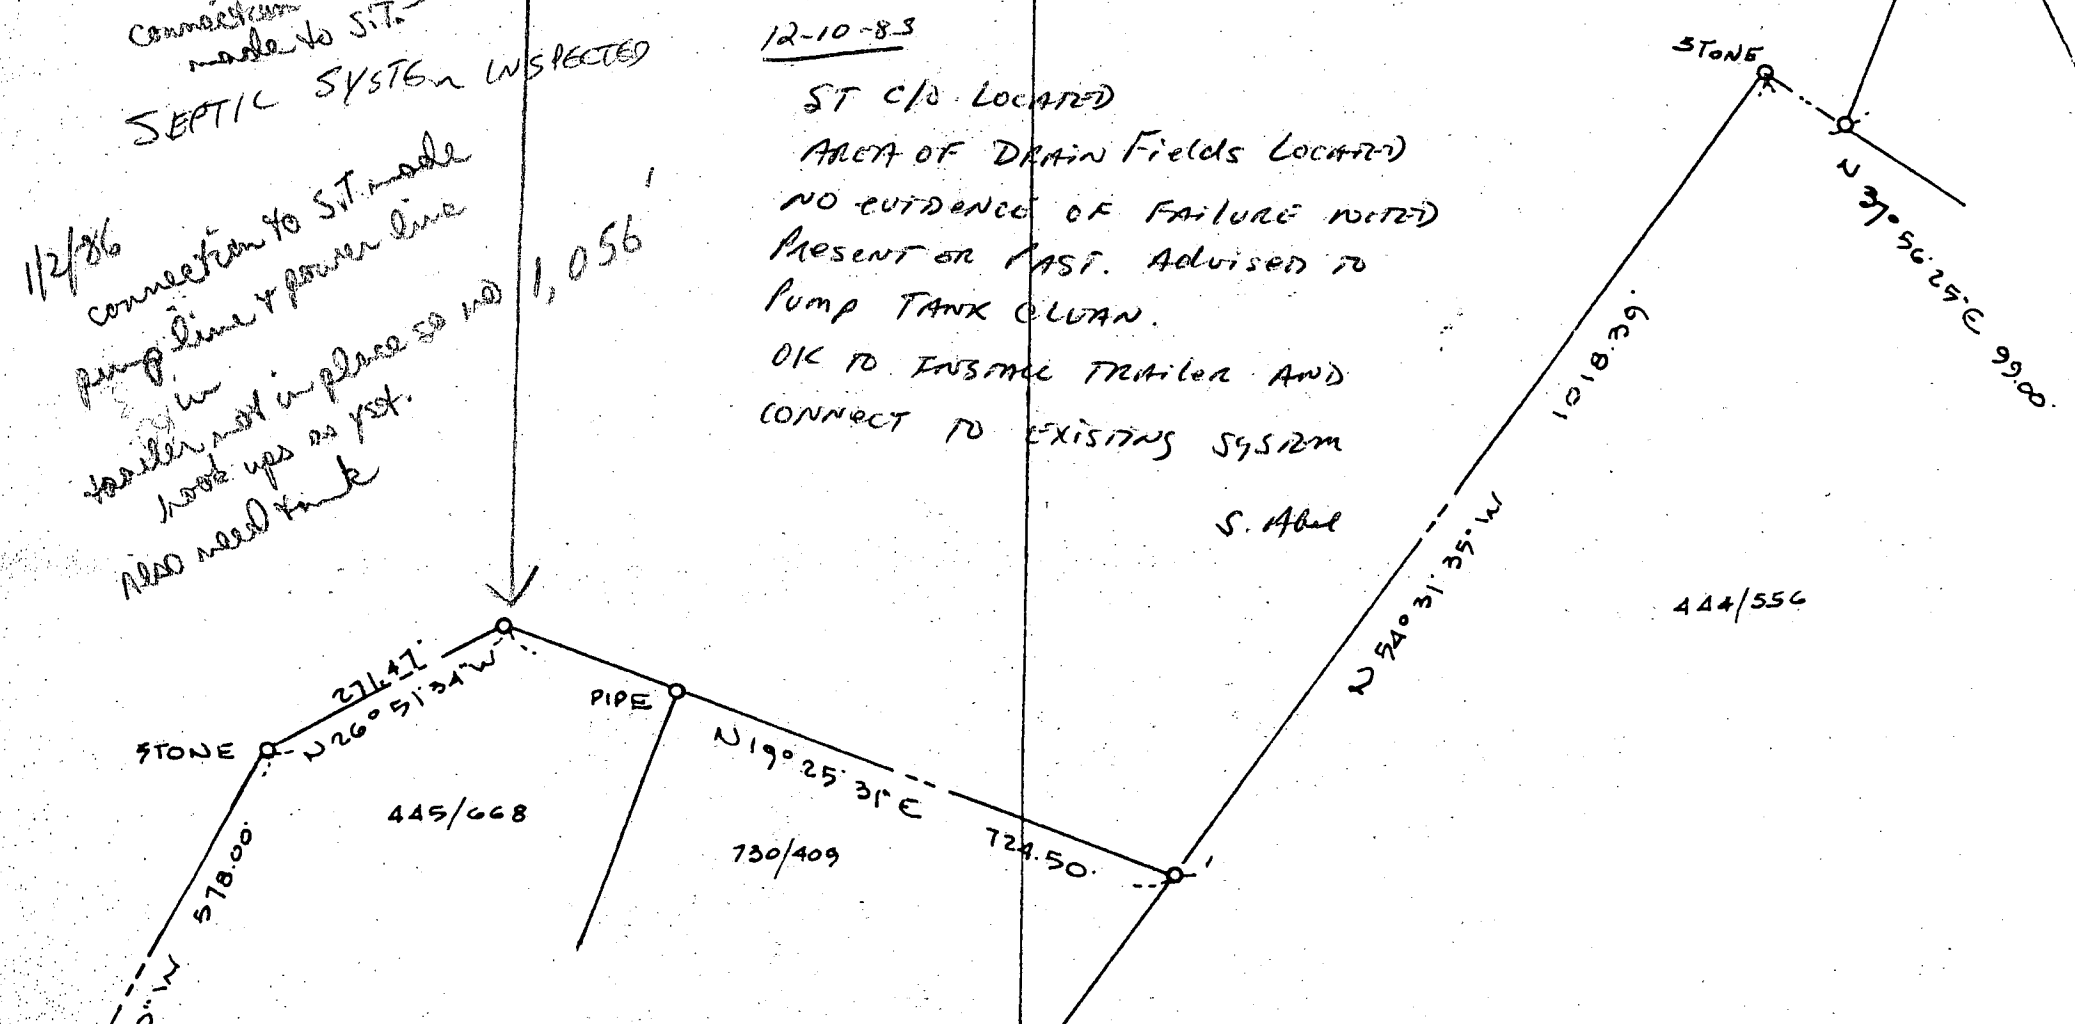 connection
made to S.T.-
SEPTIC SYSTEM INSPECTED
1/2/86
connection to S.T. made
pump line & power line
in
trailer not in place so no
hook ups as yet.
Also need tank
1,056'
12-10-83
ST C/O LOCATED
AREA OF DRAIN Fields LOCATED
NO EVIDENCE OF FAILURE NOTED
PRESENT OR PAST. Advised TO
Pump TANK CLEAN.
OK TO INSTALL TRAILER AND
CONNECT TO EXISTING SYSTEM
S. Abel
STONE
N 37° 56' 25" E 99.00'
1018.39'
N 54° 31' 35" W
444/556
271.47'
N 26° 51' 34" W
STONE
PIPE
N 19° 25' 31" E
724.50'
445/668
730/409
578.00'
0" W